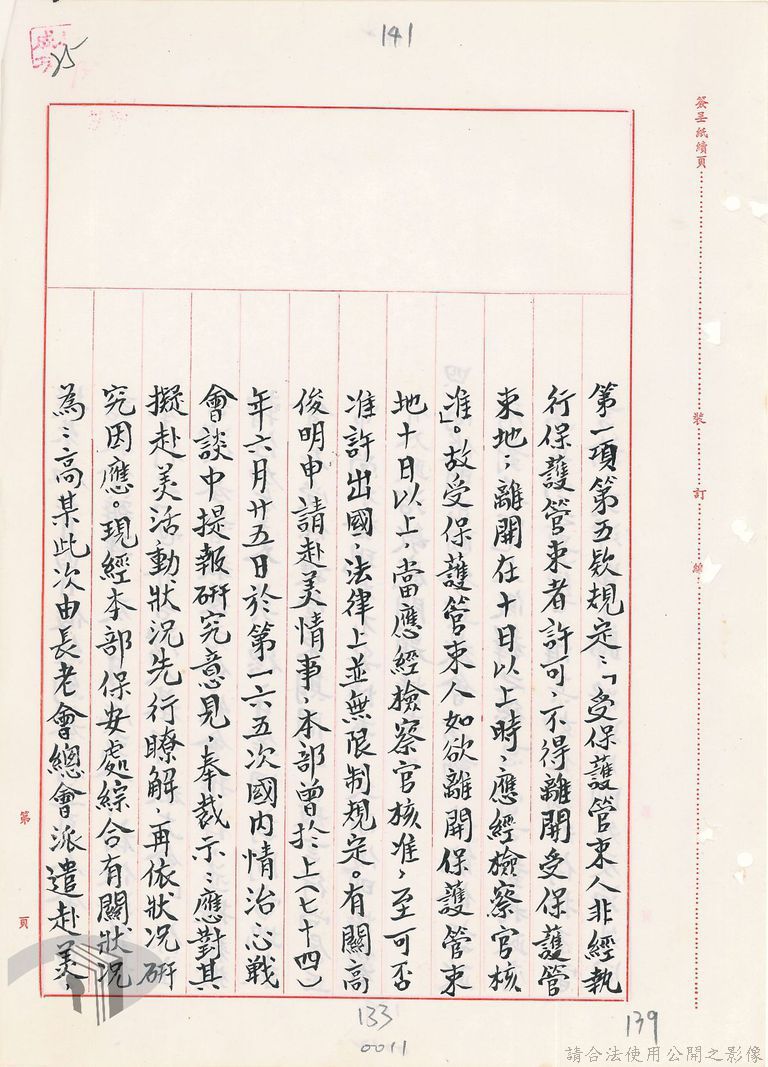 141
25
簽呈紙續頁
裝
訂
線
第一項第五欵規定：「受保護管束人非經執
行保護管束者許可，不得離開受保護管
束地；離開在十日以上時，應經檢察官核
准」。故受保護管束人如欲離開保護管束
地十日以上，當應經檢察官核准，至可否
准許出國，法律上並無限制規定。有關高
俊明申請赴美情事，本部曾於上(七十四)
年六月廿五日於第一六五次國內情治心戰
會談中提報研究意見，奉裁示：應對其
擬赴美活動狀況先行瞭解，再依狀況研
究因應。現經本部保安處綜合有關狀況
為：高某此次由長老會總會派遣赴美，
第
頁
133
0011
139
請合法使用公開之影像